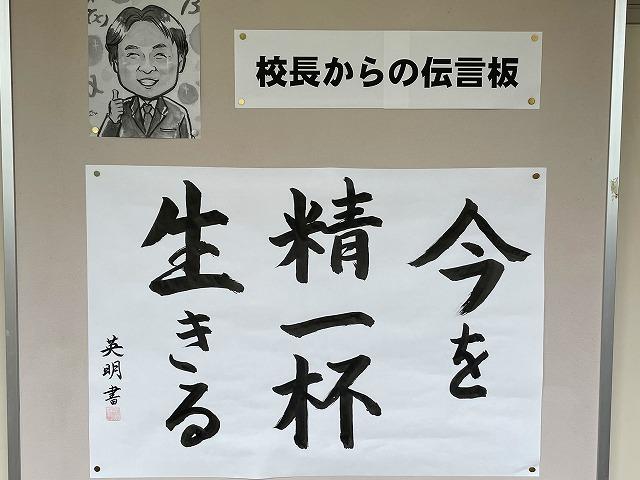 校長からの伝言板
今を
精一杯
生きる
英明書